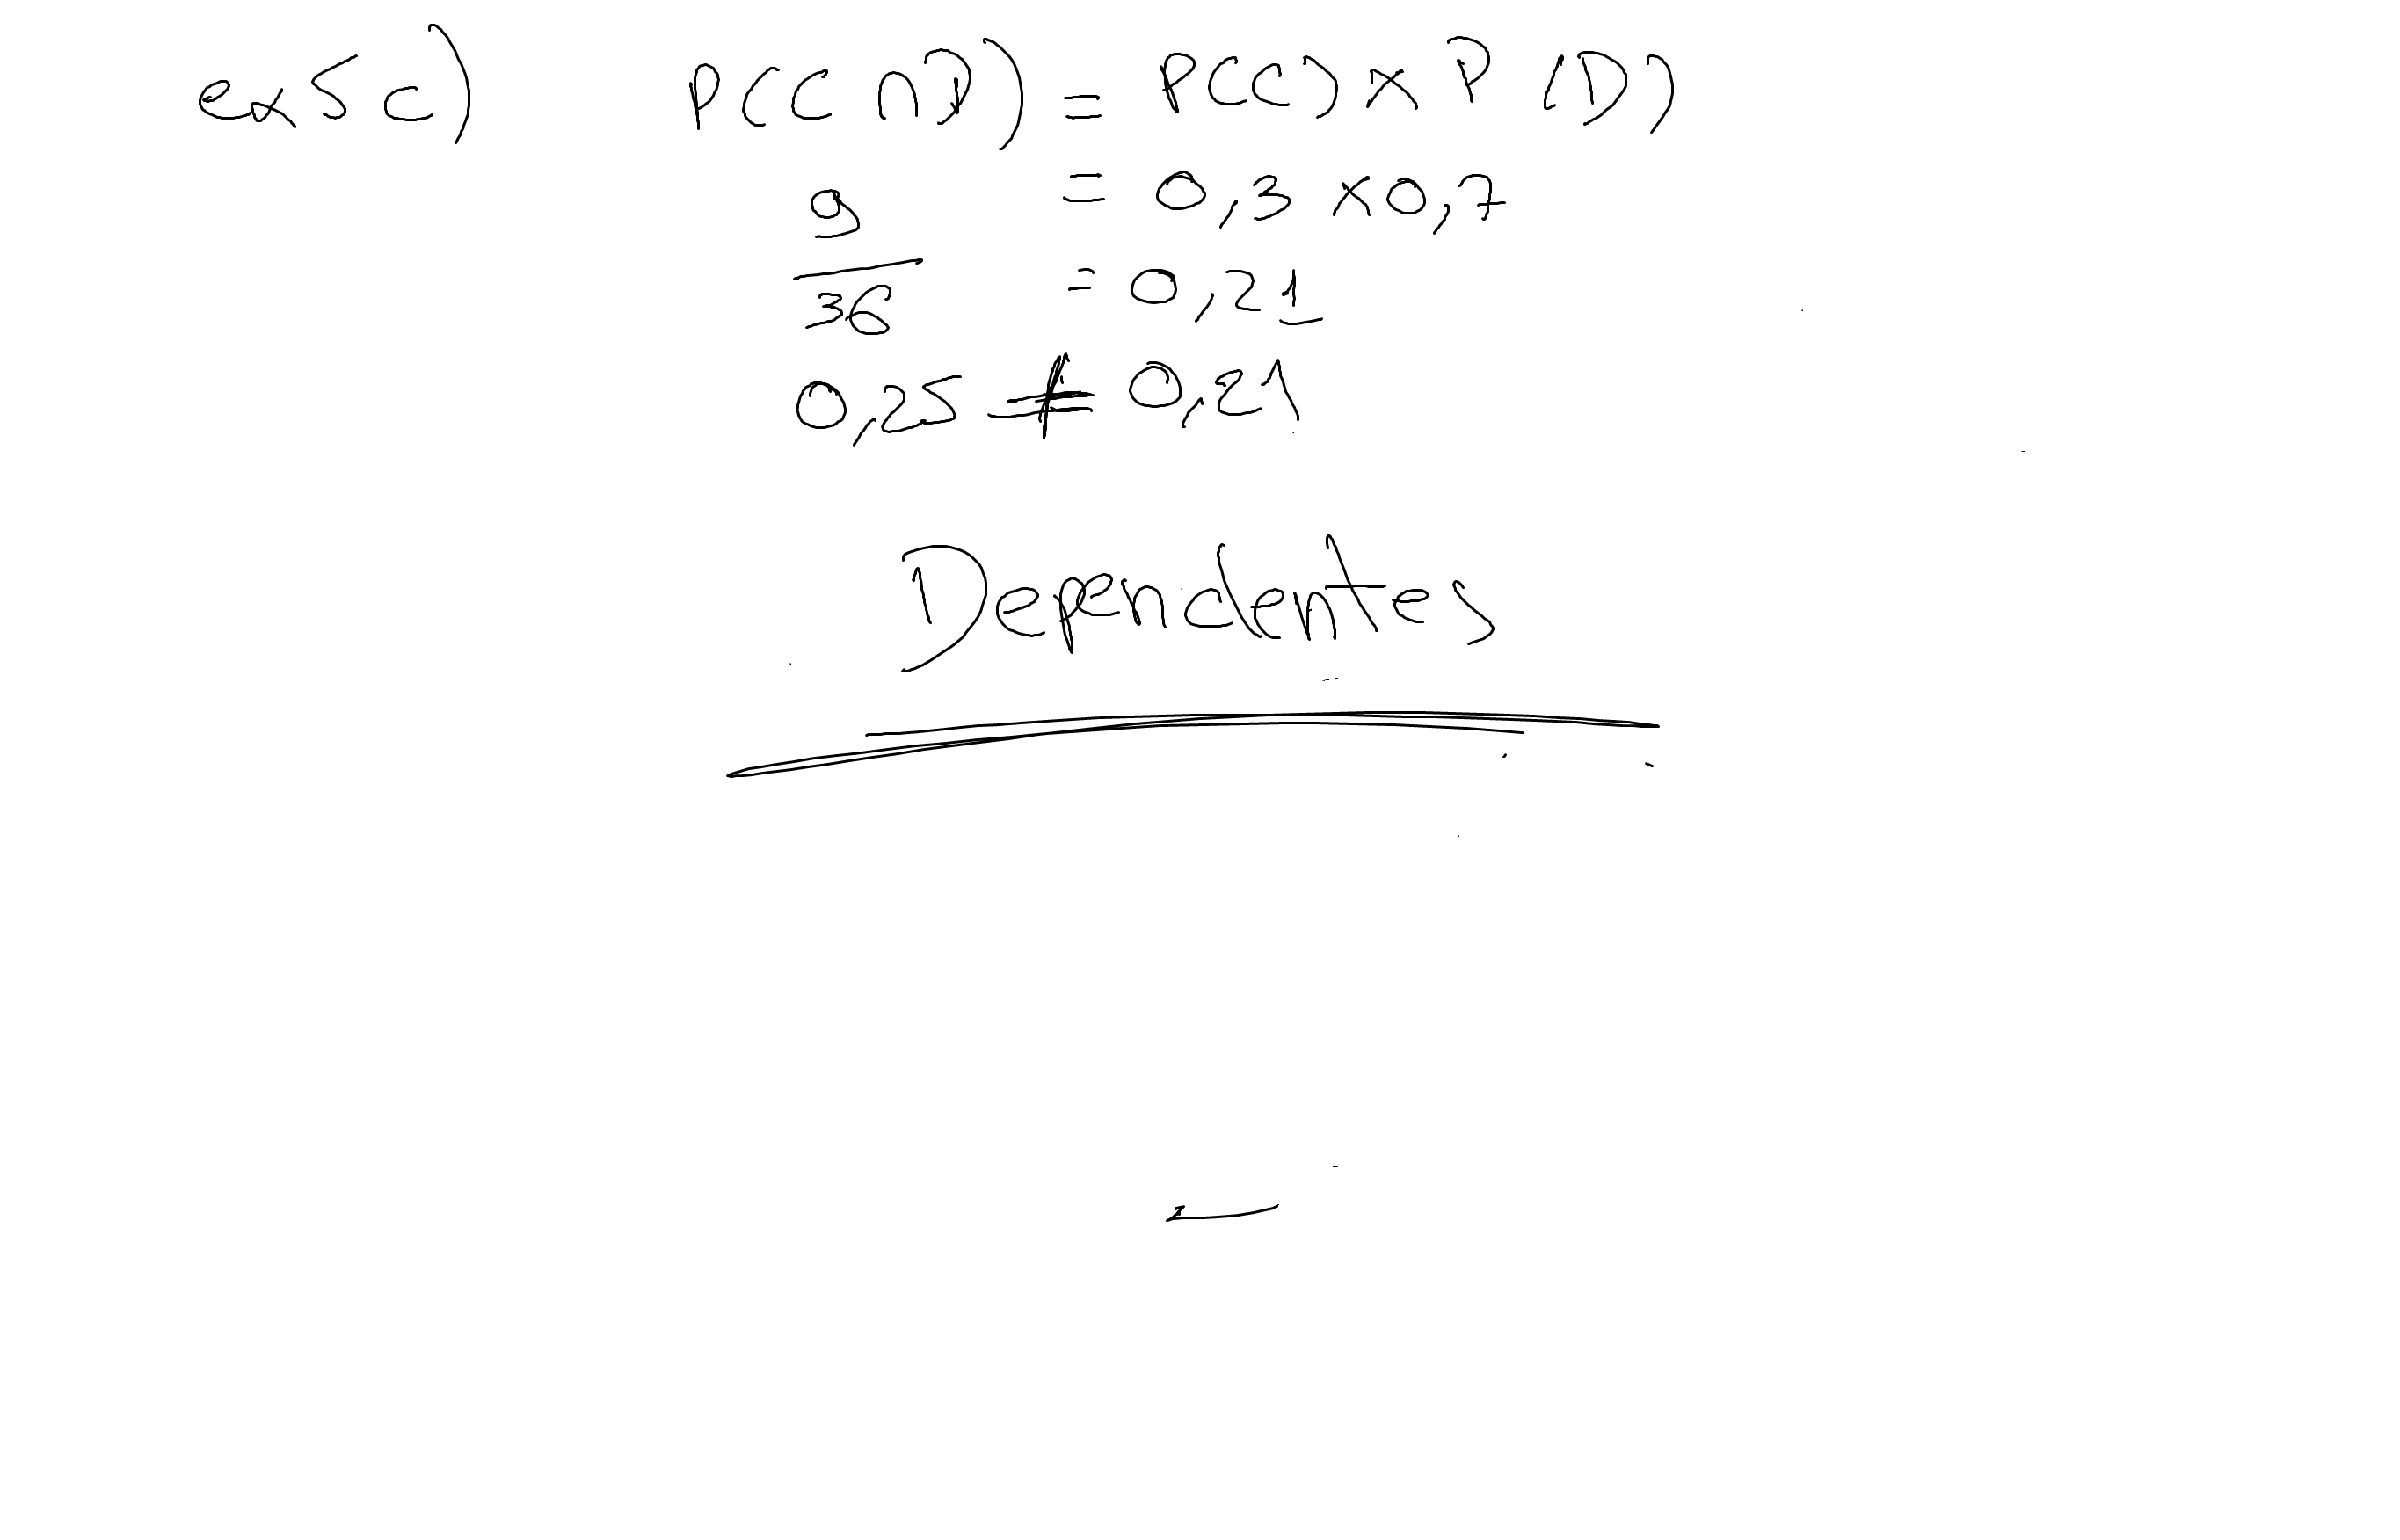 ex5 c) P(C ∩ D) = P(C) x P(D)
9/36 = 0,3 x 0,7
= 0,21
0,25 ≠ 0,21
Dependentes